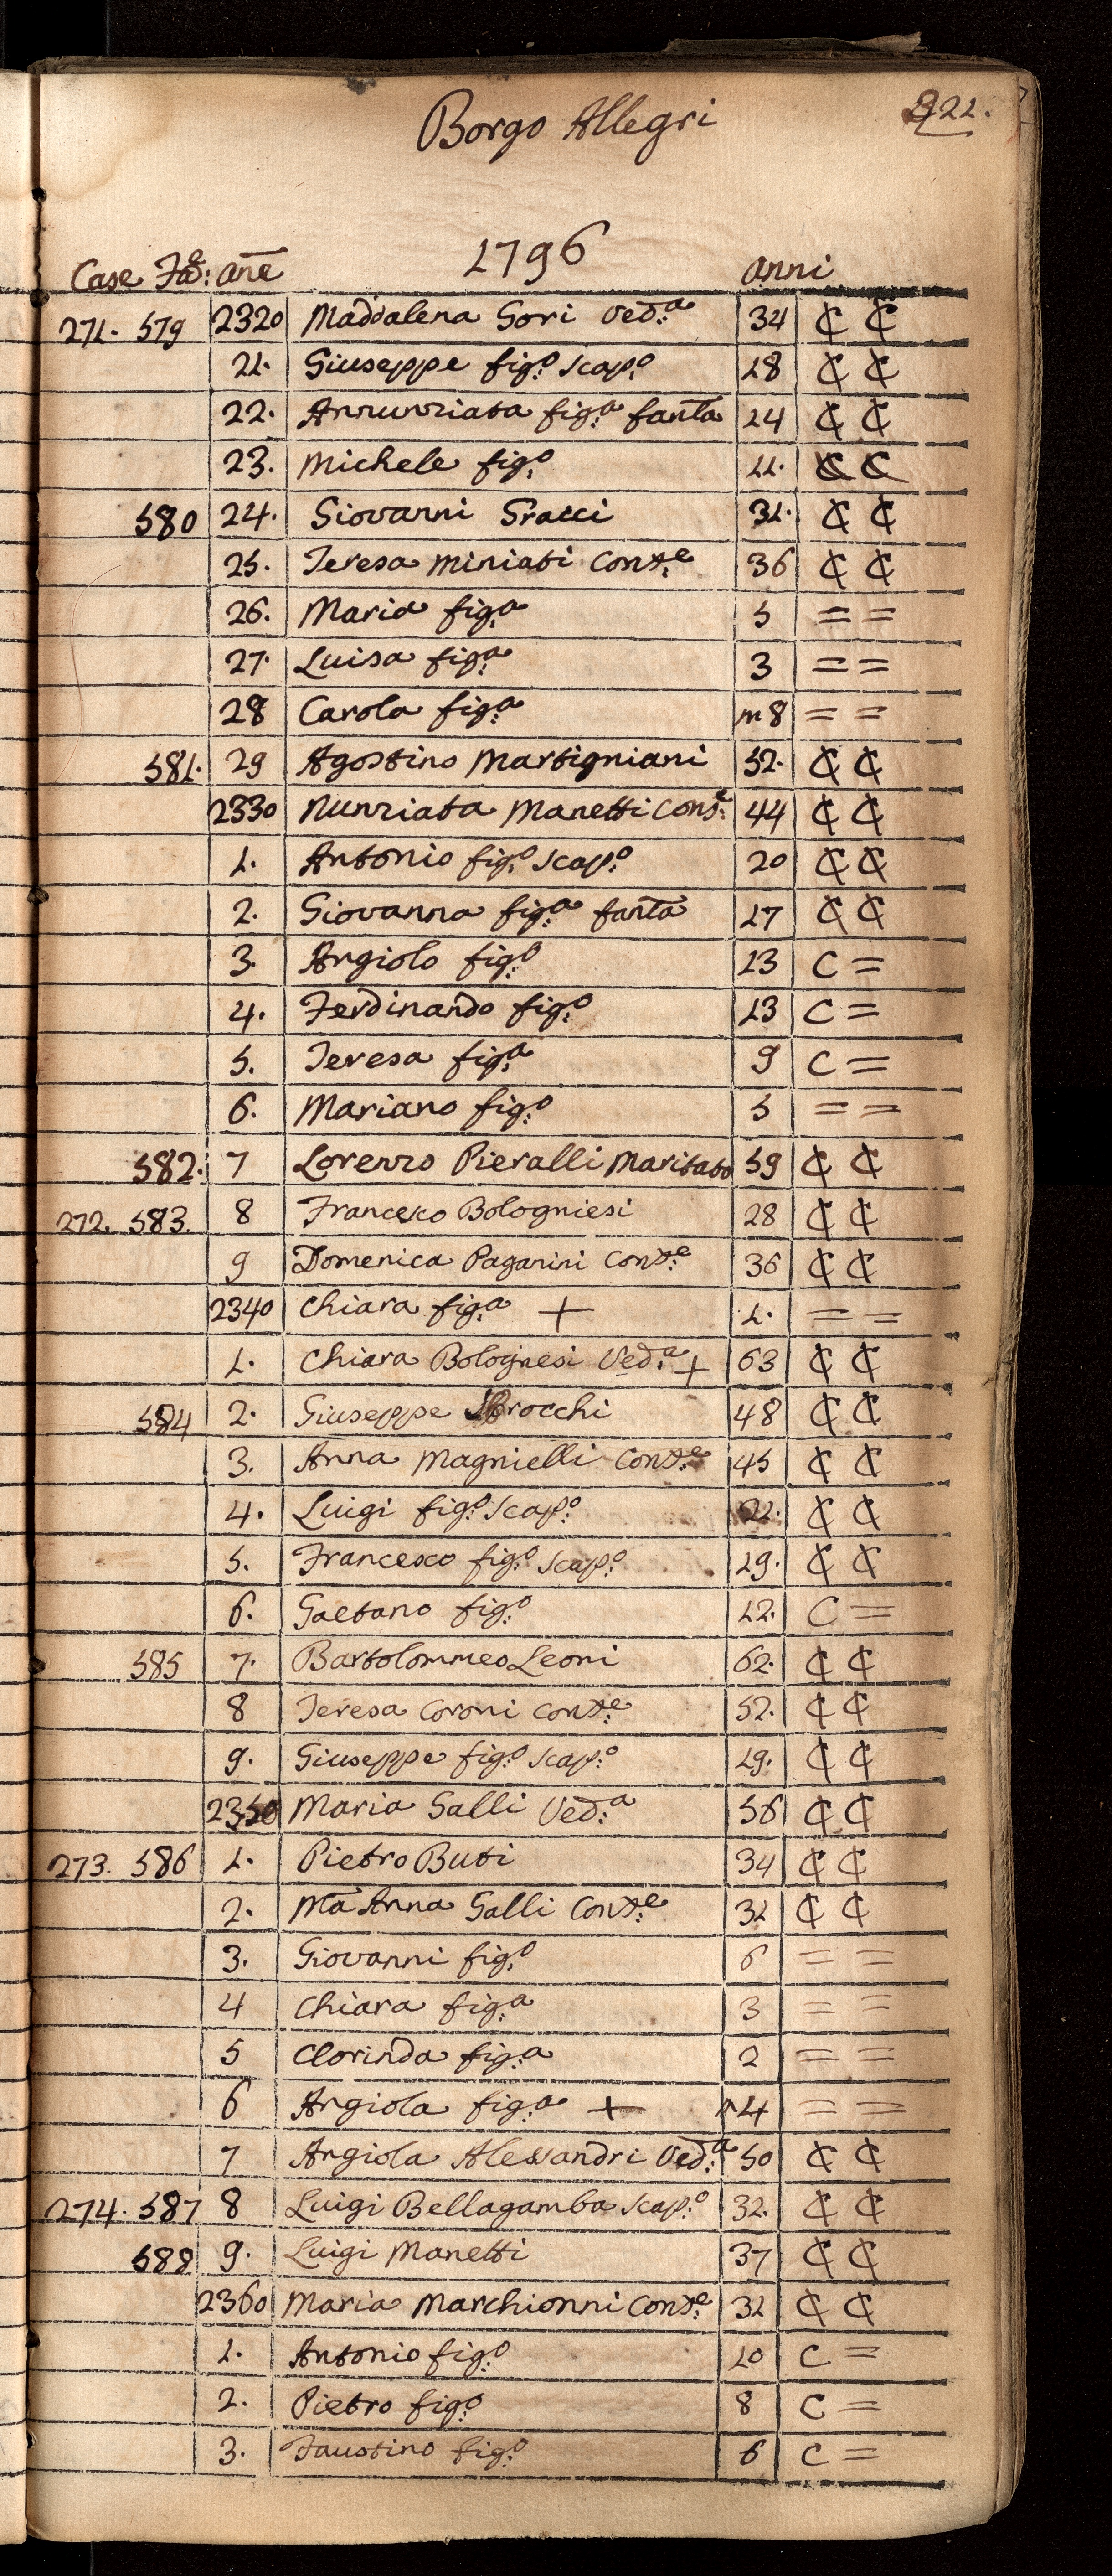 221.
Borgo Allegri
1796
Case Fa:e Ane Anni
271. 579 2320 Maddalena Gori Ved:a 34 ₵ ₵
21. Giuseppe fig:o scap:o 18 ₵ ₵
22. Annunziata fig:a fanta 24 ₵ ₵
23. Michele fig:o 11. ₵ ₵
580 24. Giovanni Gracci 31. ₵ ₵
25. Teresa Miniati Cons:e 36 ₵ ₵
26. Maria fig:a 5 = =
27. Luisa fig:a 3 = =
28 Carola fig:a m 8 = =
581. 29 Agostino Martigniani 52. ₵ ₵
2330 Nunziata Manetti Cons:e 44 ₵ ₵
1. Antonio fig:o scap:o 20 ₵ ₵
2. Giovanna fig:a fanta 17 ₵ ₵
3. Angiolo fig:o 13 C =
4. Ferdinando fig:o 13 C =
5. Teresa fig:a 9 C =
6. Mariano fig:o 5 = =
582. 7 Lorenzo Pieralli Maritato 59 ₵ ₵
272. 583. 8 Francesco Bologniesi 28 ₵ ₵
9 Domenica Paganini Cons:e 36 ₵ ₵
2340 Chiara fig:a + 1. = =
1. Chiara Bolognesi Ved:a + 63 ₵ ₵
584 2. Giuseppe Brocchi 48 ₵ ₵
3. Anna Magnielli Cons:e 45 ₵ ₵
4. Luigi fig:o scap:o 22. ₵ ₵
5. Francesco fig:o scap:o 19. ₵ ₵
6. Gaetano fig:o 12. C =
585 7. Bartolommeo Leoni 62. ₵ ₵
8 Teresa Coroni Cons:e 52. ₵ ₵
9. Giuseppe fig:o scap:o 19. ₵ ₵
2350 Maria Galli Ved:a 56 ₵ ₵
273. 586 1. Pietro Buti 34 ₵ ₵
2. Ma Anna Galli Cons:e 31 ₵ ₵
3. Giovanni fig:o 6 = =
4 Chiara fig:a 3 = =
5 Clorinda fig:a 2 = =
6 Angiola fig:a + m 4 = =
7 Angiola Alessandri Ved:a 50 ₵ ₵
274. 587 8 Luigi Bellagamba scap:o 32. ₵ ₵
588 9. Luigi Manetti 37 ₵ ₵
2360 Maria Marchionni Cons:e 31 ₵ ₵
1. Antonio fig:o 10 C =
2. Pietro fig:o 8 C =
3. Faustino fig:o 6 C =